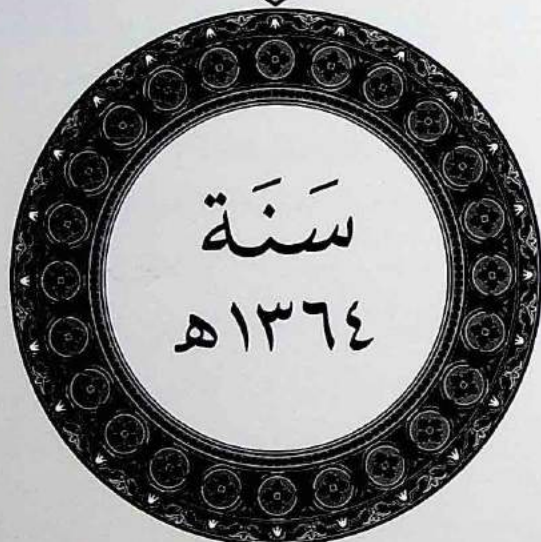 سَنَة
١٣٦٤هـ